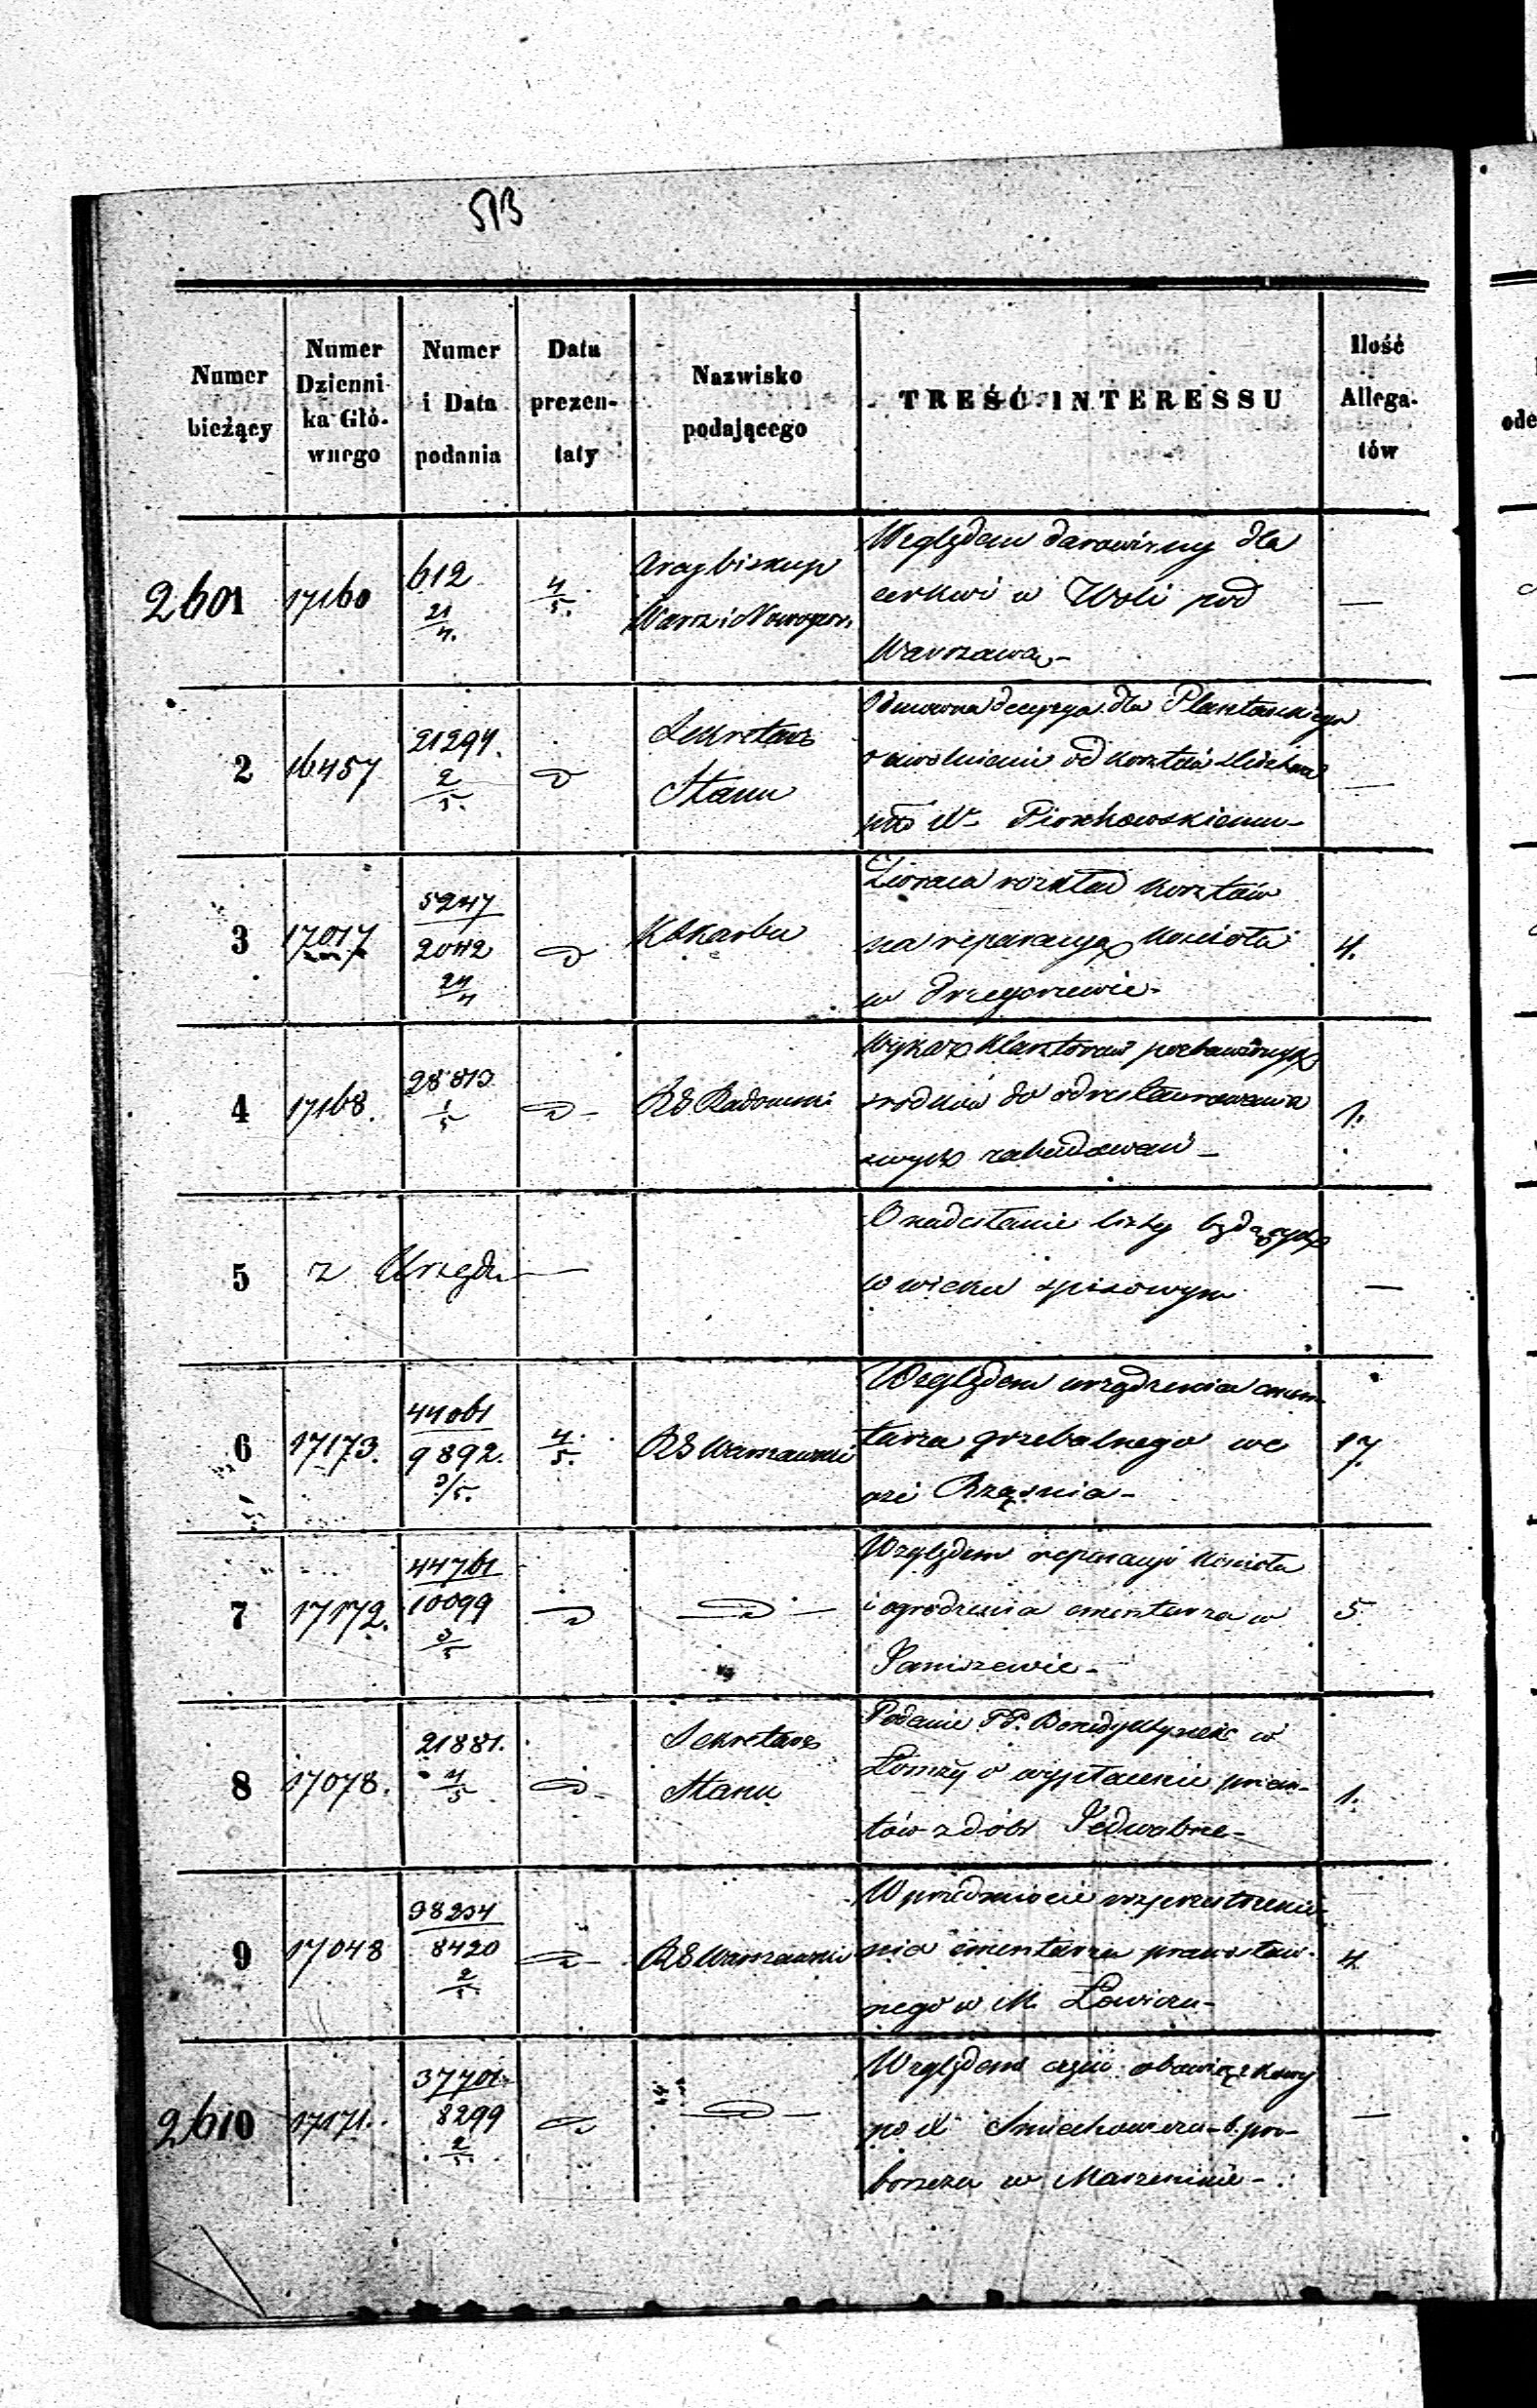 513
Numer bieżący
Numer Dzienni- ka Głó- wnego
Numer i Data podania
Data prezen- taty
Nazwisko podającego
TREŚĆ INTERESSU
Ilość Allega- tów
2601 17160 612 21/4. 4/5. Arcybiskup Warsz i Nowogeor. Względem darowizny dla
cerkwi w Woli pod —
Warszawą –
2 16457 21294. 2/5. Sekretarz Stanu Odmowna decyzya dla
o uwolnienie od kosztów —
po W. Piorchowskiemu –
3 17017 5247 2042 24/4 K Skarbu Zwraca rozkład kosztów
na reparacyą kościoła 4.
w Grzegorzewie –
4 17168. 28813 1/5 RG Radomski Wykaz Klasztorów pozbawionych
środków do odrestaurowania 1.
swych zabudowań –
5 z Urzędu — O nadesłanie listy będących
w wieku spisowym —
6 17173. 44061 9892. 3/5. 4/5. RG Warszawski Względem urządzenia cmen-
tarza grzebalnego we 17
wsi Rząśnia –
7 17172. 44761 10099 3/5 Względem reparacyi kościoła
i ogrodzenia cmentarza w 5
Janiszewie –
8 17078. 21881. 4/5 Sekretarz Stanu Podanie PP. Benedyktynek w
Łomży o wypłacenie procen-
tów z dóbr Jedwabne – 1.
9 17048 38254 8420 2/5. RG Warszawski W przedmiocie rozprzestrzenie-
nia cmentarza prawosław- 4
nego w M. Łowiczu –
2610 17171. 37701 8299 2/5. Względem części obowiązkowej
po X Śmiechowiczu – b. pro- —
boszczu w Marzeninie –